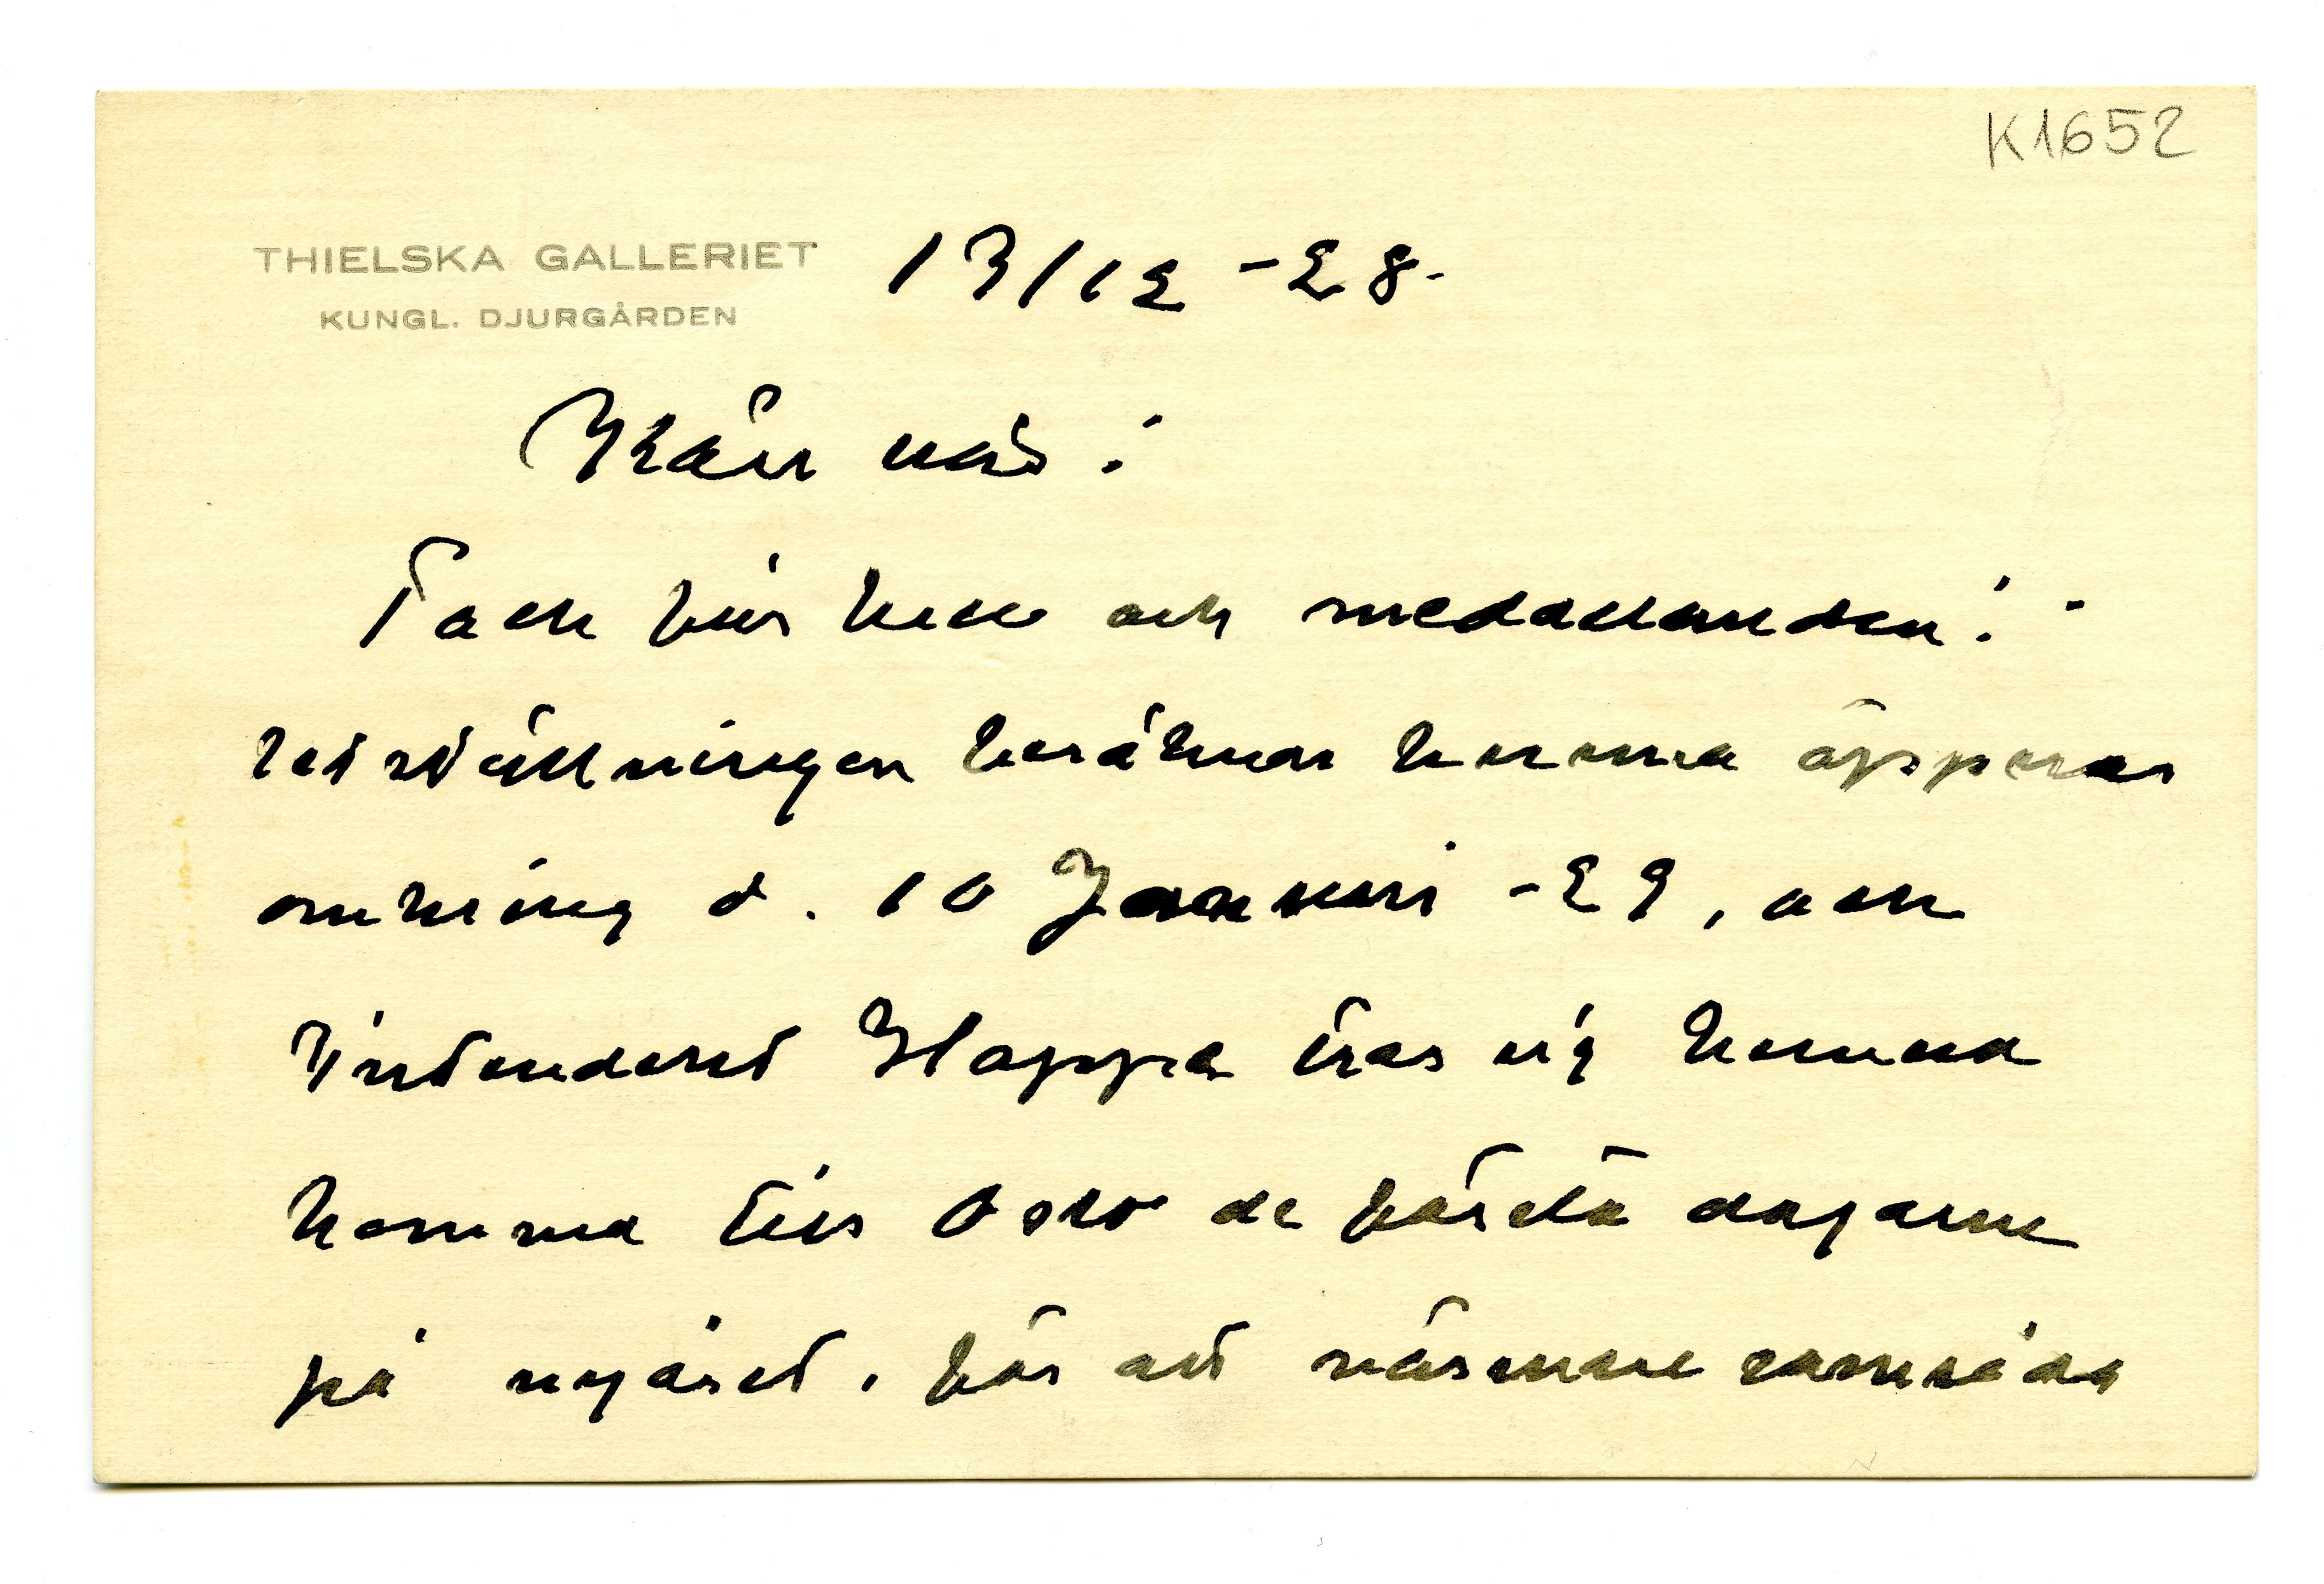 K1652
THIELSKA GALLERIET
KUNGL. DJURGÅRDEN
13/12 -28.
Kära vän!
Tack för brev och meddelanden! -
Utställningen beräknas kunna öppnas
omkring d. 10 Januari -29, och
Intendent Hoppe tror sig kunna
komma till Oslo de första dagarne
på nyåret, för att närmare samråda